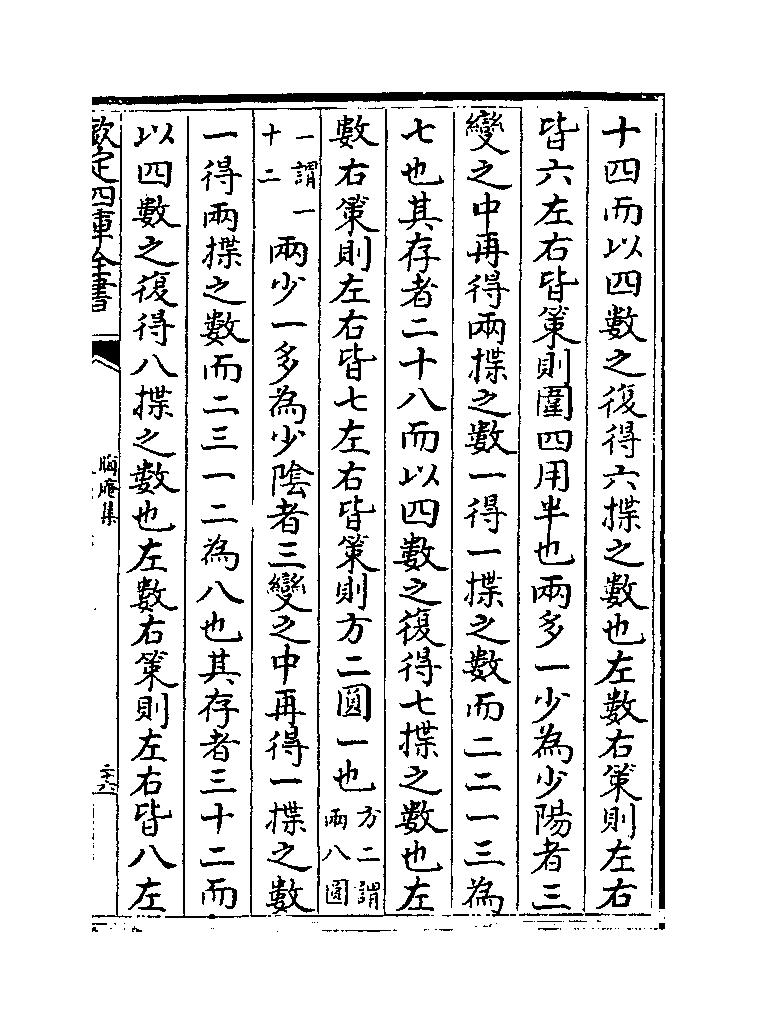 十四而以四數之復得六揲之數也左數右策則左右
皆六左右皆策則圍四用半也兩多一少為少陽者三
變之中再得兩揲之數一得一揲之數而二二一三為
七也其存者二十八而以四數之復得七揲之數也左
數右策則左右皆七左右皆策則方二圓一也方二謂兩八圓
一謂一十二兩少一多為少陰者三變之中再得一揲之數
一得兩揲之數而二三一二為八也其存者三十二而
以四數之復得八揲之數也左數右策則左右皆八左
欽定四庫全書
晦庵集
二十六